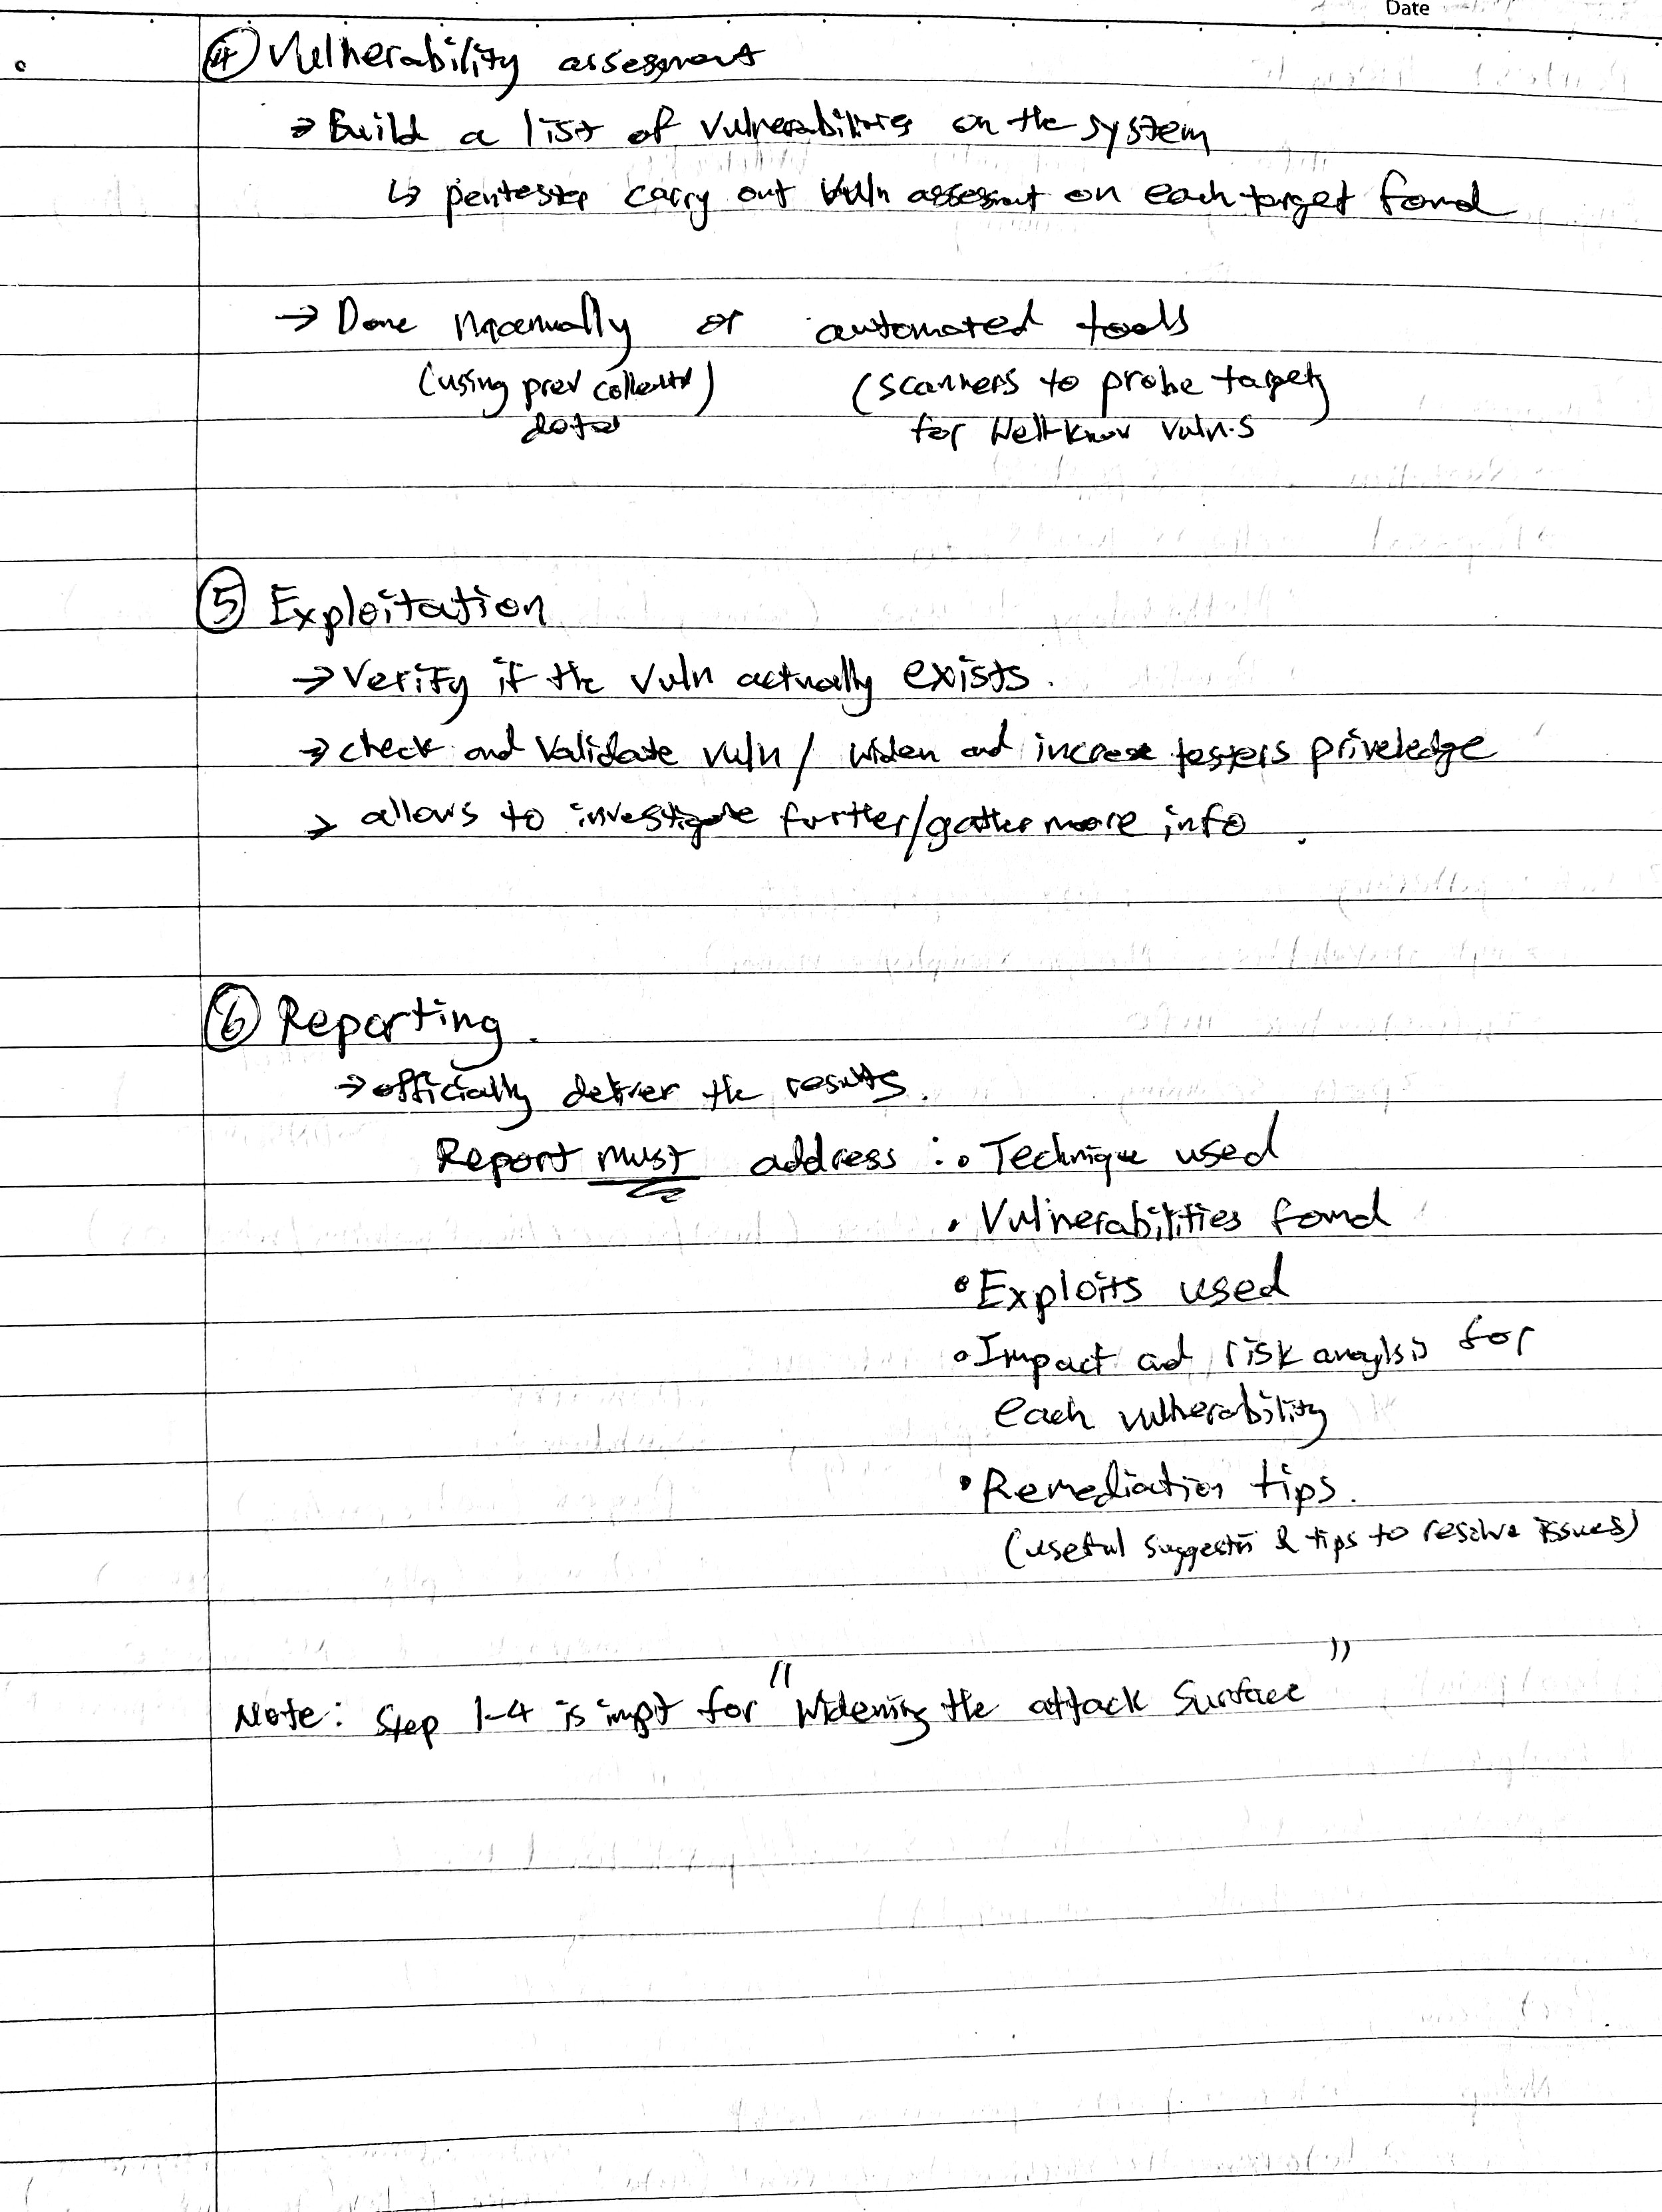 Date
④ Vulnerability assessment
→ Build a list of vulnerabilities on the system
↳ pentester carry out vuln assessmt on each target found
→ Done Manually or automated tools
(using prev collected data) (scanners to probe targets for well-know vuln.s
⑤ Exploitation
→ Verify if the vuln actually exists.
→ check and validate vuln / widen and increase testers priveledge
→ allows to investigate further/gather more info.
⑥ Reporting.
→ officially deliver the results.
Report must address : • Technique used
• Vulnerabilities found
• Exploits used
• Impact and risk analysis for
each vulnerability
• Remediation tips.
(useful suggestion & tips to resolve issues)
Note: Step 1-4 is impt for "Widening the attack surface"